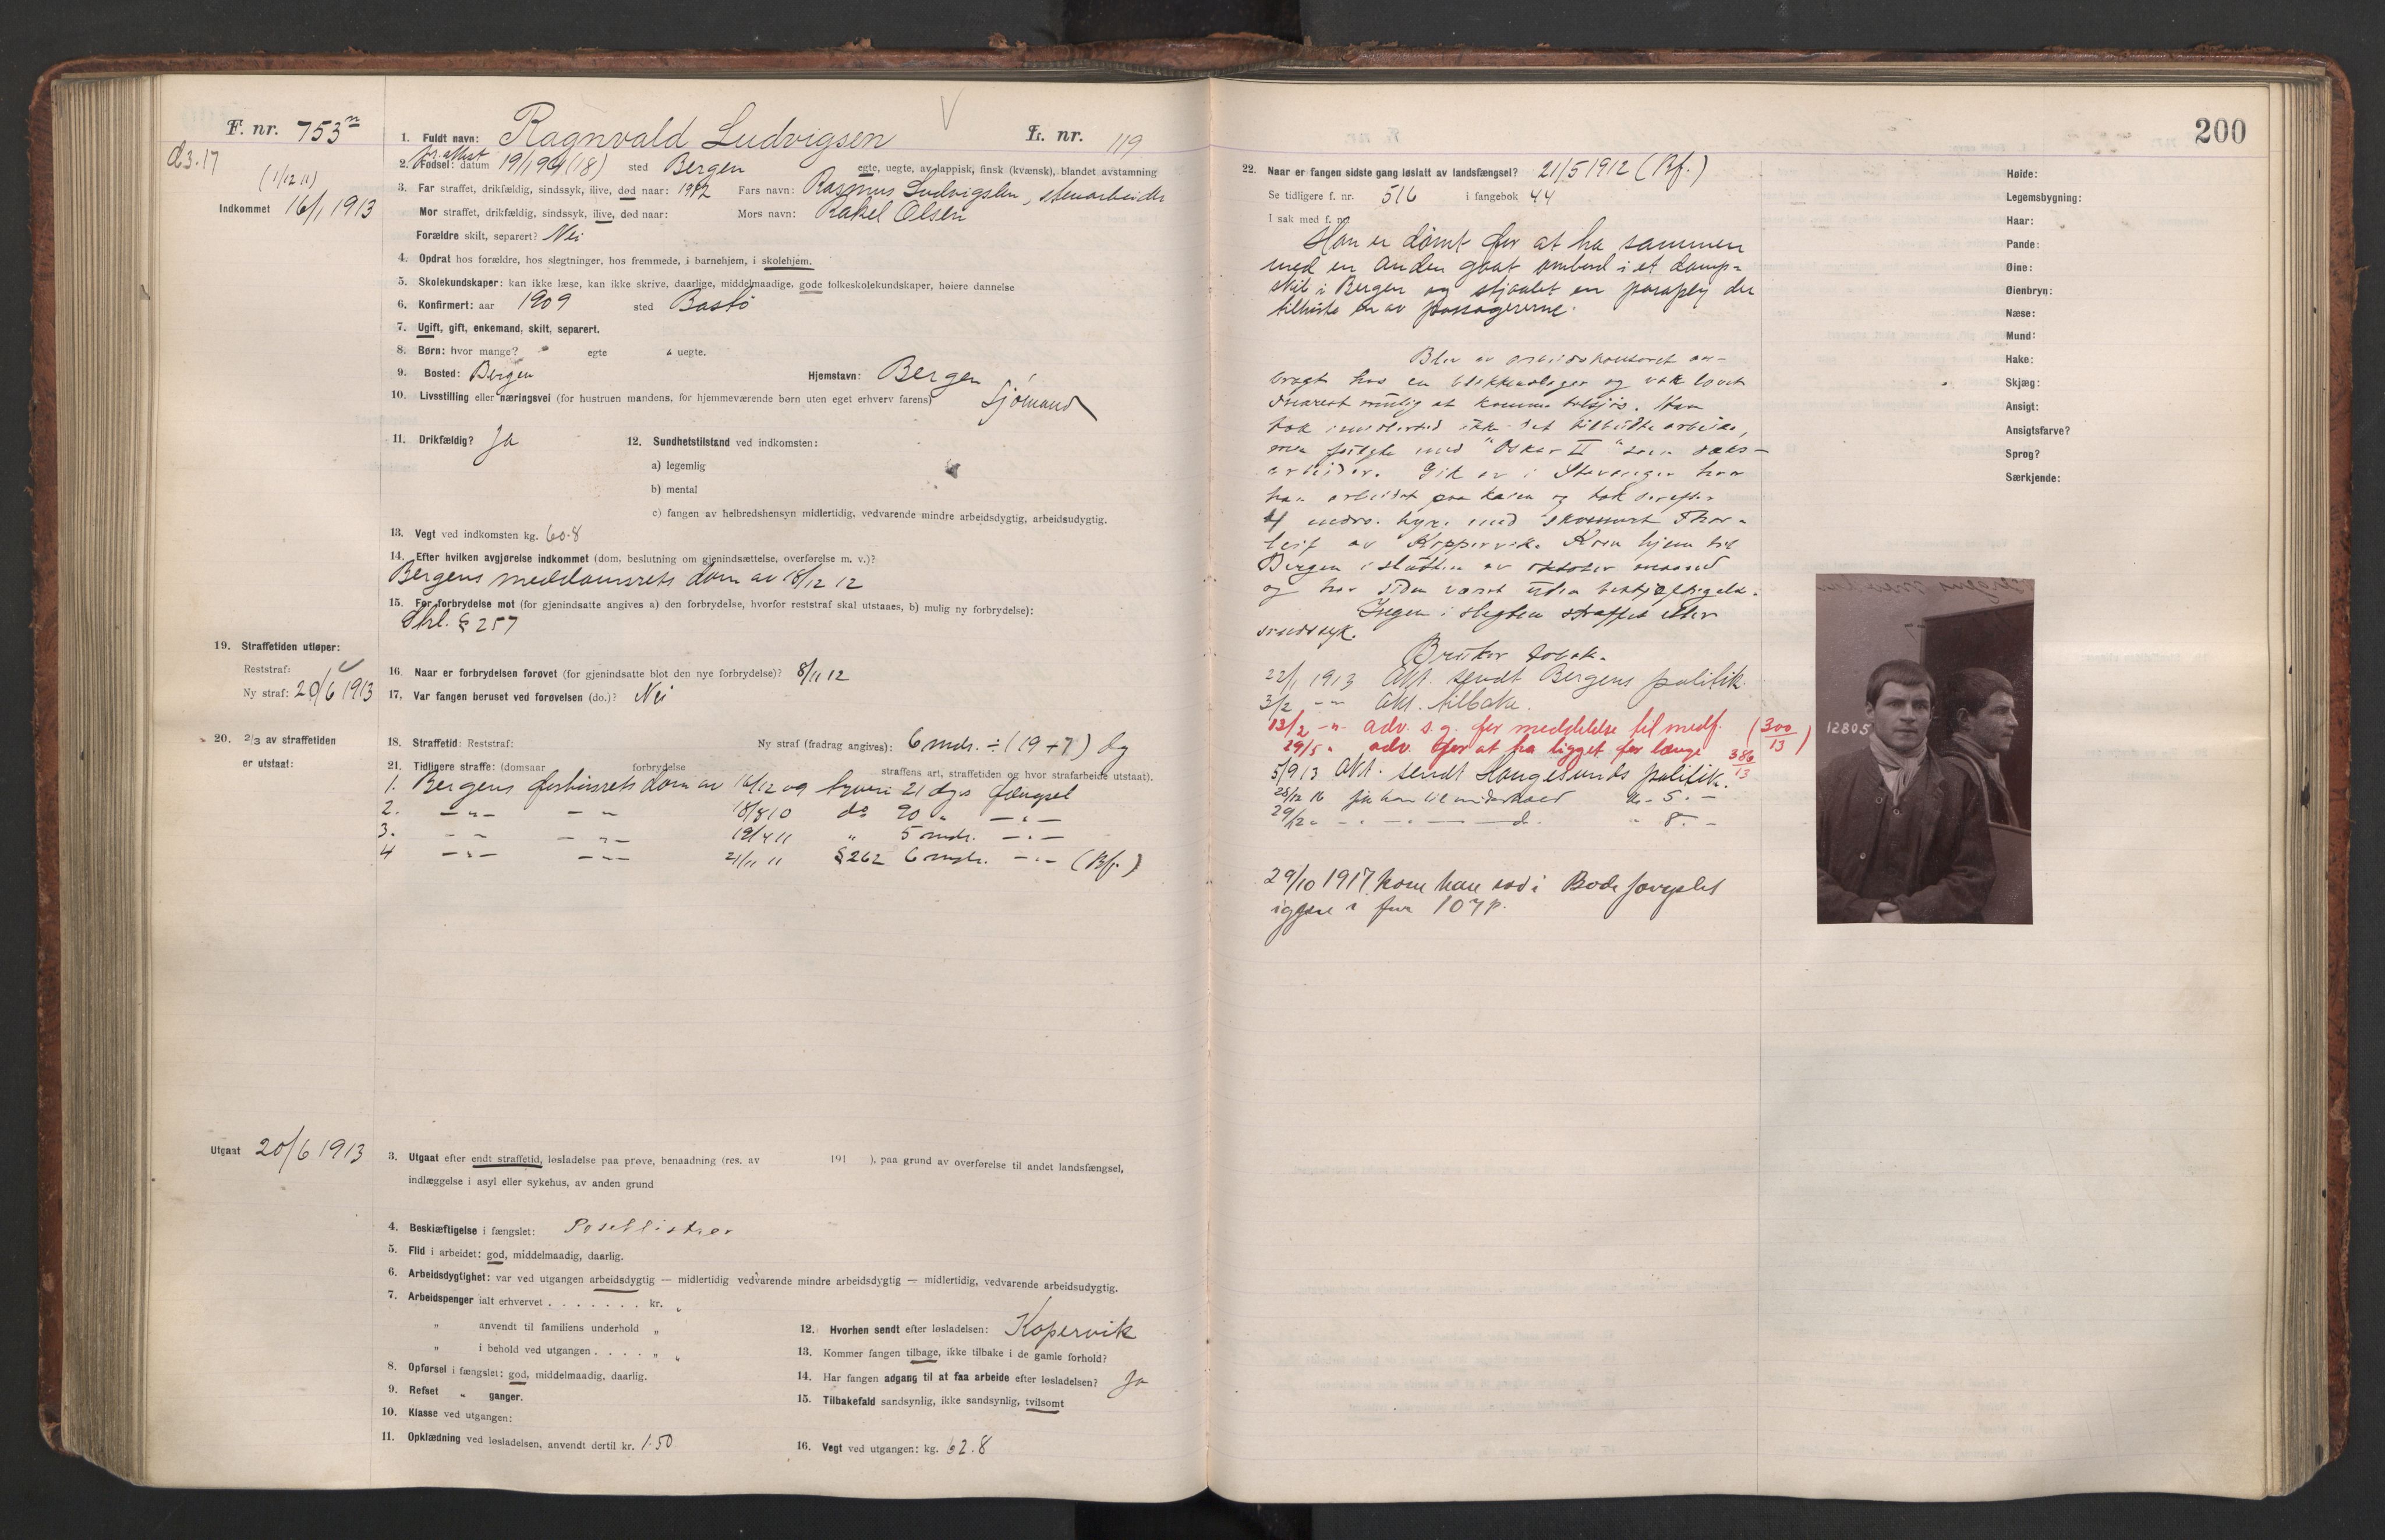 F. nr. 753
d 3.17
(1/12 11)
Indkommet 16/1 1913
19. Straffetiden utløper:
Reststraf:
Ny straf: 20/6 1913
20. 2/3 av straffetiden
er utstaat:
Utgaat 20/6 1913
1. Fuldt navn: Ragnvald Ludvigsen V L. nr. 119
2. Fødsel: datum (18) sted Bergen egte, uegte, av lappisk, finsk (kvænsk), blandet avstamning
3. Far straffet, drikfældig, sindssyk, ilive, død naar: 1912 Fars navn: Rasmus Ludvigsen, stenarbeider
Mor straffet, drikfældig, sindssyk, ilive, død naar: Mors navn: Rakel Olsen
Forældre skilt, separert? Nei
4. Opdrat hos forældre, hos slegtninger, hos fremmede, i barnehjem, i skolehjem.
5. Skolekundskaper: kan ikke læse, kan ikke skrive, daarlige, middelmaadige, gode folkeskolekundskaper, høiere dannelse
6. Konfirmert: aar 1909 sted Bastø
7. Ugift, gift, enkemand, skilt, separert.
8. Børn: hvor mange? " egte " uegte.
9. Bosted: Bergen Hjemstavn: Bergen
10. Livsstilling eller næringsvei (for hustruen mandens, for hjemmeværende børn uten eget erhverv farens) Sjømand
11. Drikfældig? Ja 12. Sundhetstilstand ved indkomsten:
a) legemlig
b) mental
c) fangen av helbredshensyn midlertidig, vedvarende mindre arbeidsdygtig, arbeidsudygtig.
13. Vegt ved indkomsten kg. 60.8
14. Efter hvilken avgjørelse indkommet (dom, beslutning om gjenindsættelse, overførelse m. v.)?
Bergens meddomsrets dom av 18/12 12
15. For forbrydelse mot (for gjenindsatte angives a) den forbrydelse, hvorfor reststraf skal utstaaes, b) mulig ny forbrydelse):
Strl. § 257
16. Naar er forbrydelsen forøvet (for gjenindsatte blot den nye forbrydelse)? 8/11 12
17. Var fangen beruset ved forøvelsen (do.)? Nei
18. Straffetid: Reststraf: Ny straf (fradrag angives): 6 mdr. ÷ (19 + 7) dg
21. Tidligere straffe: (domsaar forbrydelse straffens art, straffetiden og hvor strafarbeide utstaat).
1. Bergens forhørsrets dom av 16/12 09 tyveri 21 dgs fængsel
2. -"- -"- 18/8 10 do 90 " -"-
3. -"- -"- 19/4 11 " 5 mdr. -"-
4 -"- -"- 21/11 11 § 262 6 mdr. -"- (Bf.)
3. Utgaat efter endt straffetid, løsladelse paa prøve, benaadning (res. av 191 ), paa grund av overførelse til andet landsfængsel,
indlæggelse i asyl eller sykehus, av anden grund
4. Beskjæftigelse i fængslet:
5. Flid i arbeidet: god, middelmaadig, daarlig.
6. Arbeidsdygtighet: var ved utgangen arbeidsdygtig — midlertidig vedvarende mindre arbeidsdygtig — midlertidig, vedvarende arbeidsudygtig.
7. Arbeidspenger ialt erhvervet . . . . . . . kr. "
" anvendt til familiens underhold "
" i behold ved utgangen . . . . " "
8. Opførsel i fængslet: god, middelmaadig, daarlig.
9. Refset " ganger.
10. Klasse ved utgangen:
11. Opklædning ved løsladelsen, anvendt dertil kr. 1.50
12. Hvorhen sendt efter løsladelsen: Kopervik
13. Kommer fangen tilbage, ikke tilbake i de gamle forhold?
14. Har fangen adgang til at faa arbeide efter løsladelsen? Ja
15. Tilbakefald sandsynlig, ikke sandsynlig, tvilsomt
16. Vegt ved utgangen: kg. 62.8
200
22. Naar er fangen sidste gang løslatt av landsfængsel? 21/5 1912 (Bf.)
Se tidligere f. nr. 516 i fangebok 44
I sak med f. nr.
Han er dømt for at ha sammen
med en anden gaat ombord i et damp-
skib i Bergen og stjaalet en paraply der
tilhørte en av passagererne.
Blev av arbeidskontoret an-
bragt hos en blikkenslager og var lovet
snarest mulig at komme tilsjøs. Han
tok imidlertid ikke det tilbudte arbeide,
men fulgte med "Oskar II" som dæks-
arbeider. Gik av i Stavanger hvor
han arbeidet paa kaien og tok derefter
4 mdrs. hyre med Thor-
leif av Koppervik. Kom hjem til
Bergen i slutten av oktober maaned
og har siden været uten beskjæftigelse.
Ingen i slegten straffet eller
sindssyk.
Bruker tobak.
22/1 1913 Akt. sendt Bergens politik.
3/2 -"- Akt. tilbake.
13/2 -"- adv. s.g. for meddelelse til medf. (300/13)
29/5 " adv. for at ha ligget for længe 386/13
5/9 13 Akt. sendt Haugesunds politik.
28/12 16 fik han til underhold kr. 5.-
29/12 " - " - " - d. " 8.-
29/10 1917 kom han ind i Bodsfængslet
igjen i fnr 107p.
Høide:
Legemsbygning:
Haar:
Pande:
Øine:
Øienbryn:
Næse:
Mund:
Hake:
Skjæg:
Ansigt:
Ansigtsfarve?
Sprog?
Særkjende:
12805